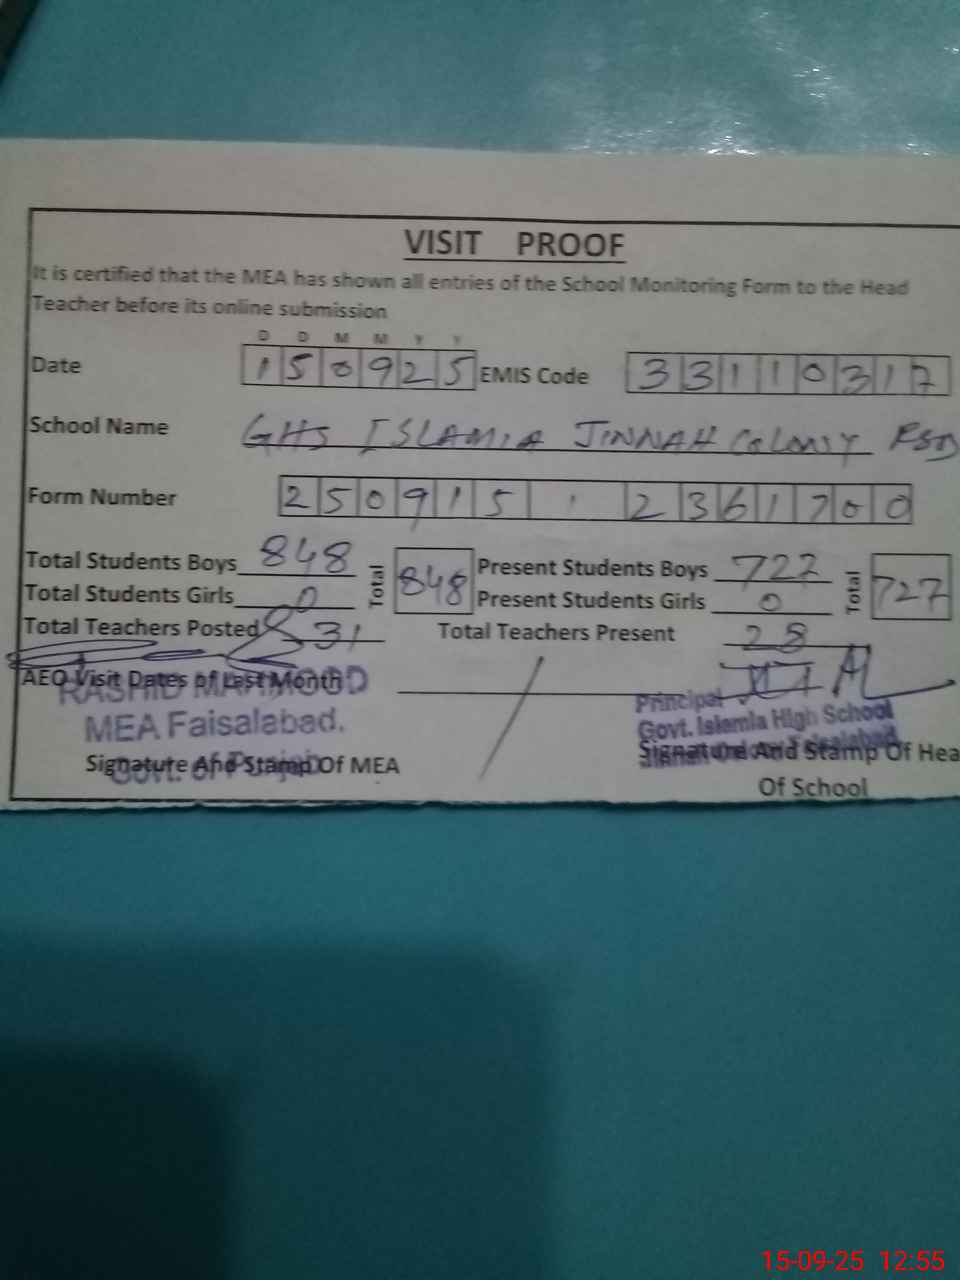 VISIT PROOF
It is certified that the MEA has shown all entries of the School Monitoring Form to the Head
Teacher before its online submission
D D M M Y Y
Date 150925 EMIS Code 33110317
School Name GHS ISLAMIA JINNAH COLONY FSD
Form Number 250915 2361700
Total Students Boys 848 Total 848 Present Students Boys 727 Total 727
Total Students Girls 0 Present Students Girls 0
Total Teachers Posted 31 Total Teachers Present 28
AEO Visit Dates of Last Month
RASHID MAHMOOD
MEA Faisalabad.
Govt. of Punjab
Signature And Stamp Of MEA
Principal
Govt. Islamia High School
Faisalabad
Signature And Stamp Of Hea
Of School
15-09-25 12:55